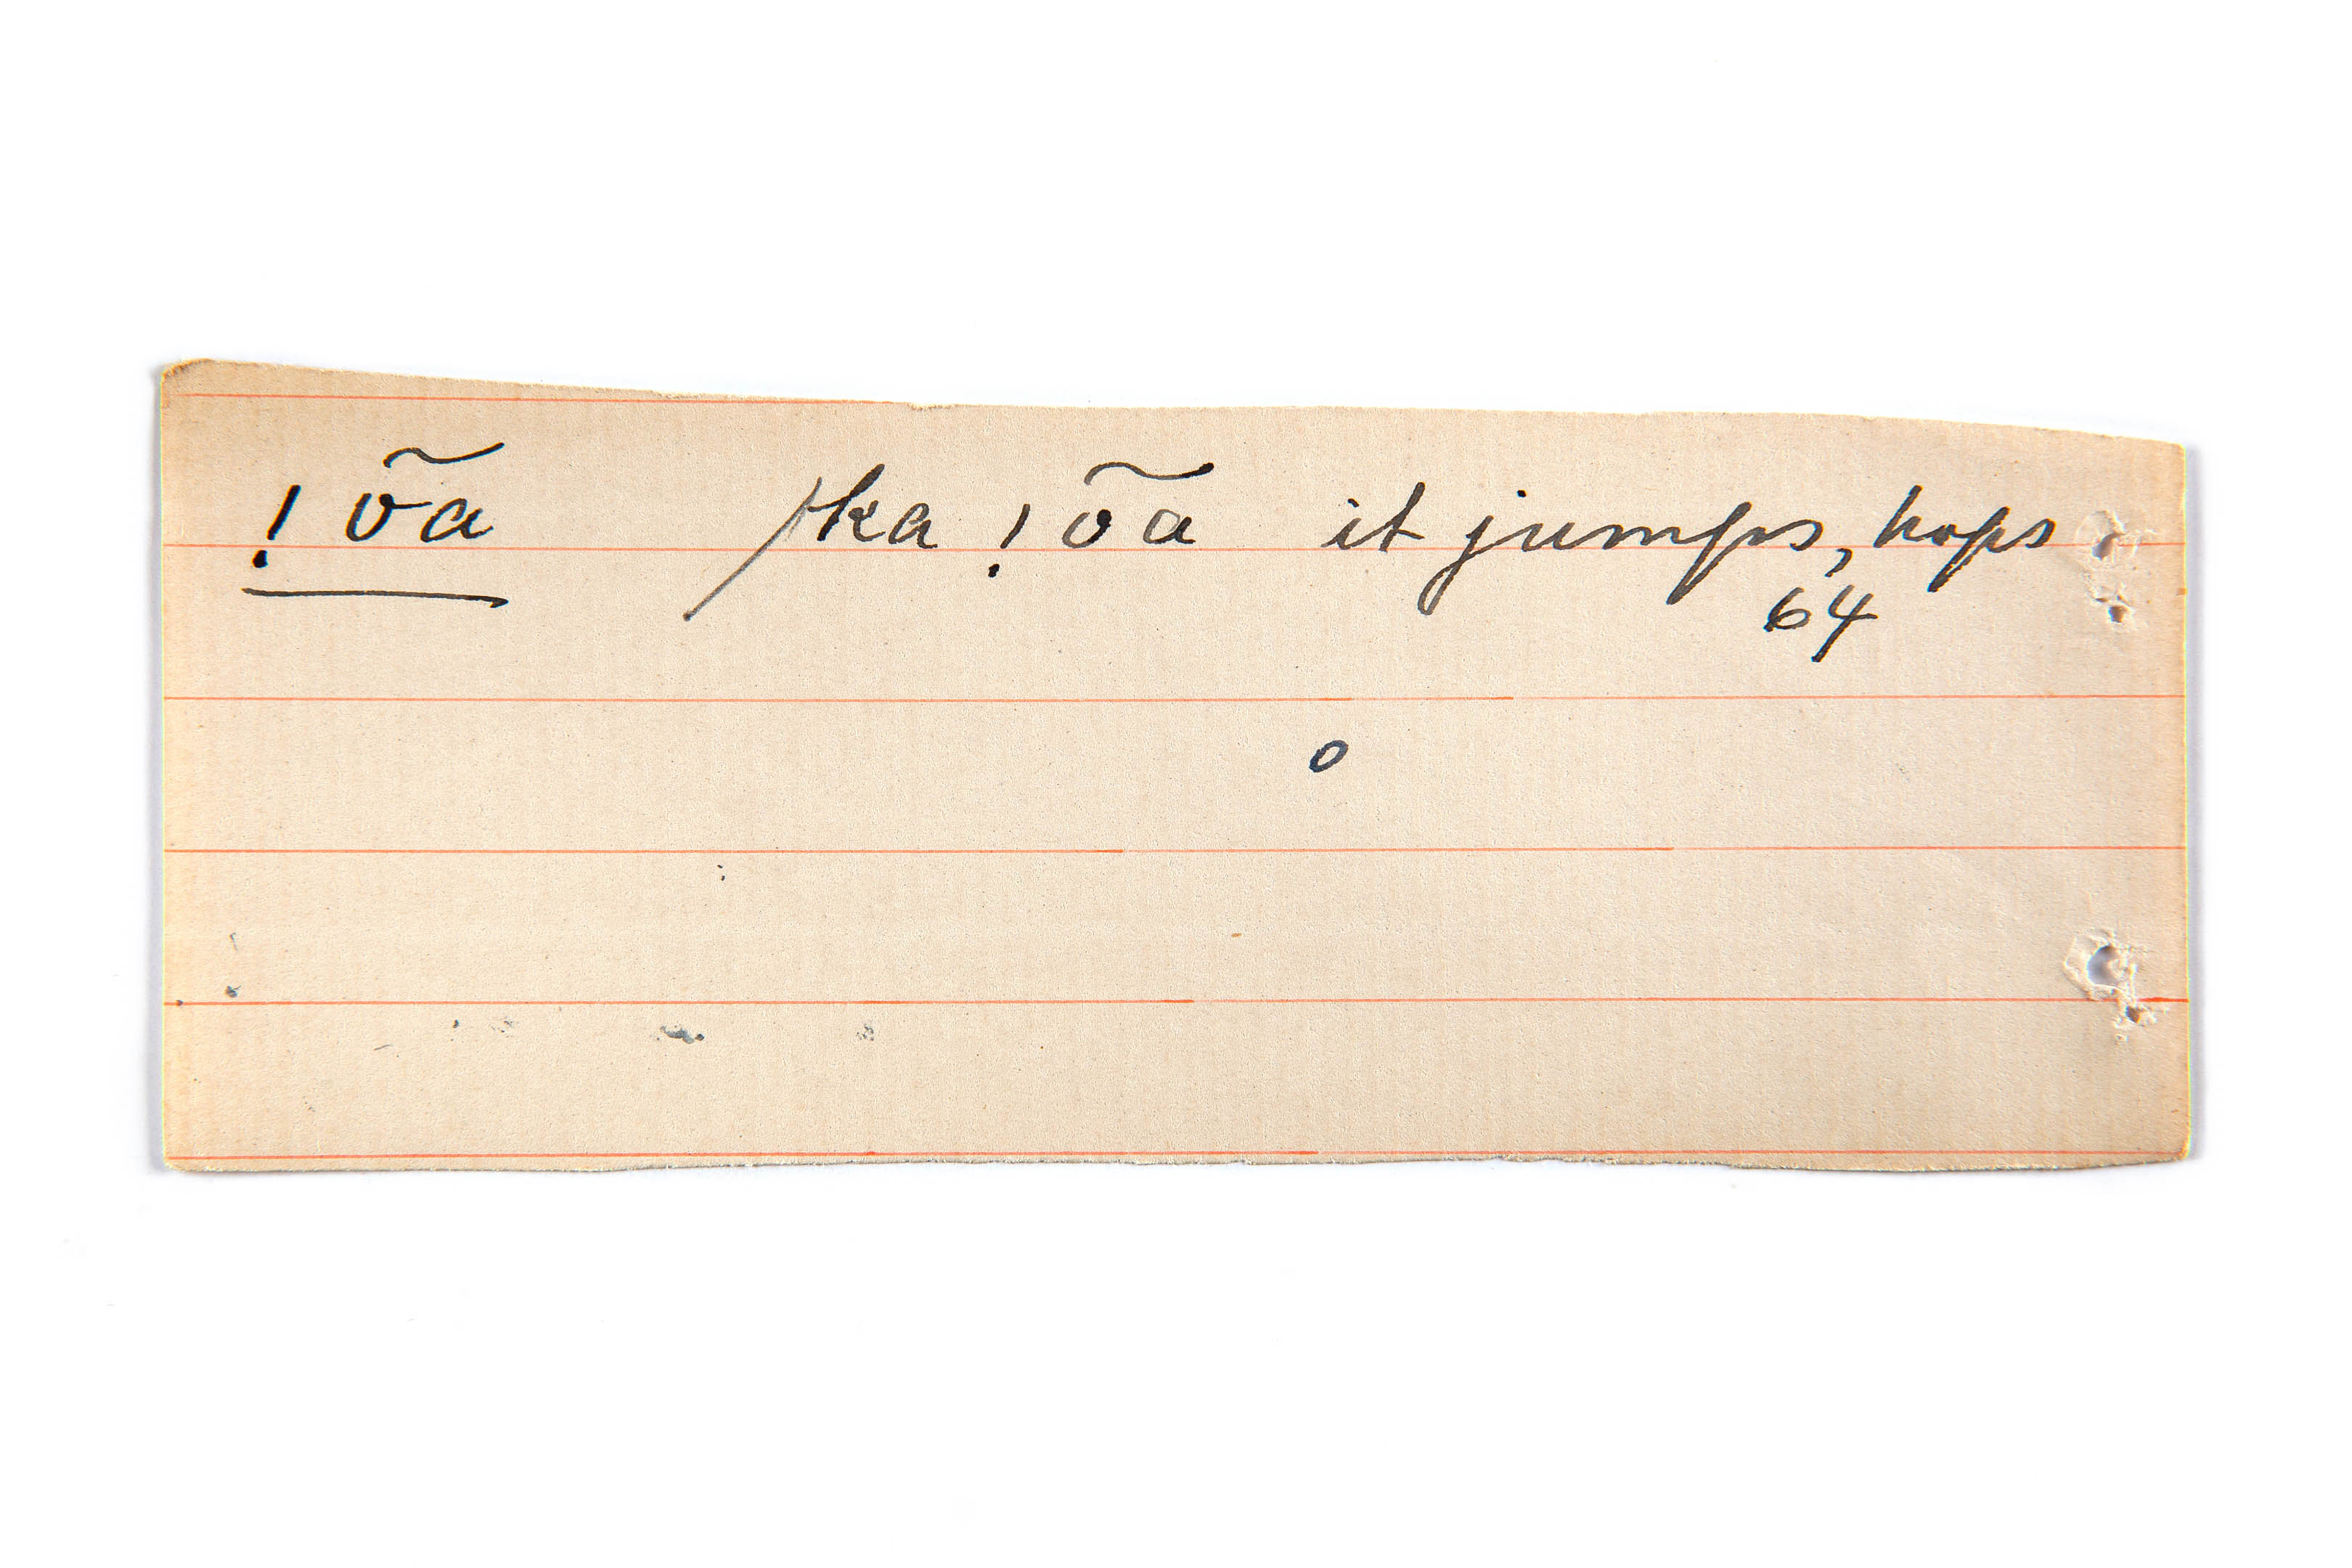 ! o͠a /ka ! o͠a it jumps, hops
64
o